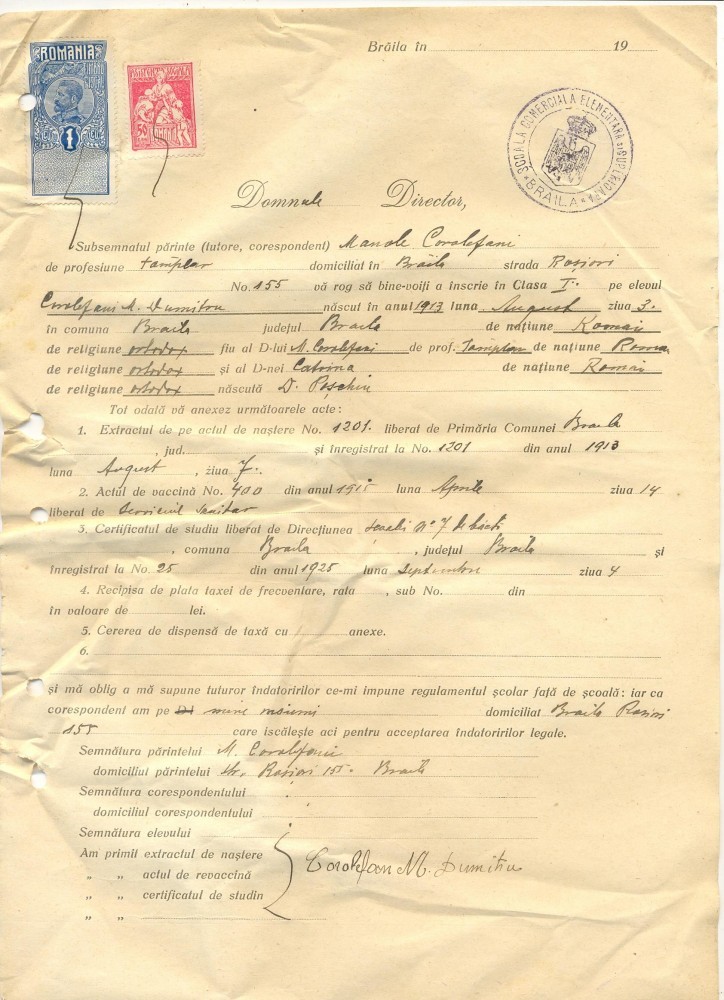 Brăila în 19
ROMANIA
TIMBRU FISCAL
1 LEU
50
ROMANIA
ȘCOALA COMERCIALA ELEMENTARĂ ȘI SUPERIOARĂ
* BRAILA *
Domnule Director,
Subsemnatul părinte (tutore, corespondent) Manole Coralefani
de profesiune tamplar domiciliat în Brăila strada Roșiori
No. 155 vă rog să bine-voiți a inscrie în Clasa I. pe elevul
M. Dumitru născut în anul 1913 luna August ziua 3.
în comuna Braila județul Braila de națiune Roman
de religiune ortodox fiu al D-lui M. Coralefani de prof. Tamplar de națiune Roman
de religiune ortodox și al D-nei Catrina de națiune Roman
de religiune ortodox născută D.
Tot odată vă anexez următoarele acte :
1. Extractul de pe actul de naștere No. 1201. liberat de Primăria Comunei Braila
, jud. și înregistrat la No. 1201 din anul 1913
luna August , ziua 7.
2. Actul de vaccină No. 400 din anul luna Aprilie ziua 14
liberat de Serviciul Sanitar
3. Certificatul de studiu liberat de Direcțiunea No 7 de
, comuna Braila , județul Braila și
înregistrat la No. 25 din anul 1925 luna Septembrie ziua 4
4. Recipisa de plata taxei de frecventare, rata , sub No. din
în valoare de lei.
5. Cererea de dispensă de taxă cu anexe.
6.
și mă oblig a mă supune tuturor îndatoririlor ce-mi impune regulamentul școlar față de școală : iar ca
corespondent am pe Dl mine domiciliat Braila Rosiori
155 care iscălește aci pentru acceptarea îndatoririlor legale.
Semnătura părintelui M. Coralefani
domiciliul părintelui Str. Rosiori 155. Braila
Semnătura corespondentului
domiciliul corespondentului
Semnătura elevului
Am primit extractul de naștere
„ „ actul de revaccină
Coralefan M. Dumitru
„ „ certificatul de studin
„ „